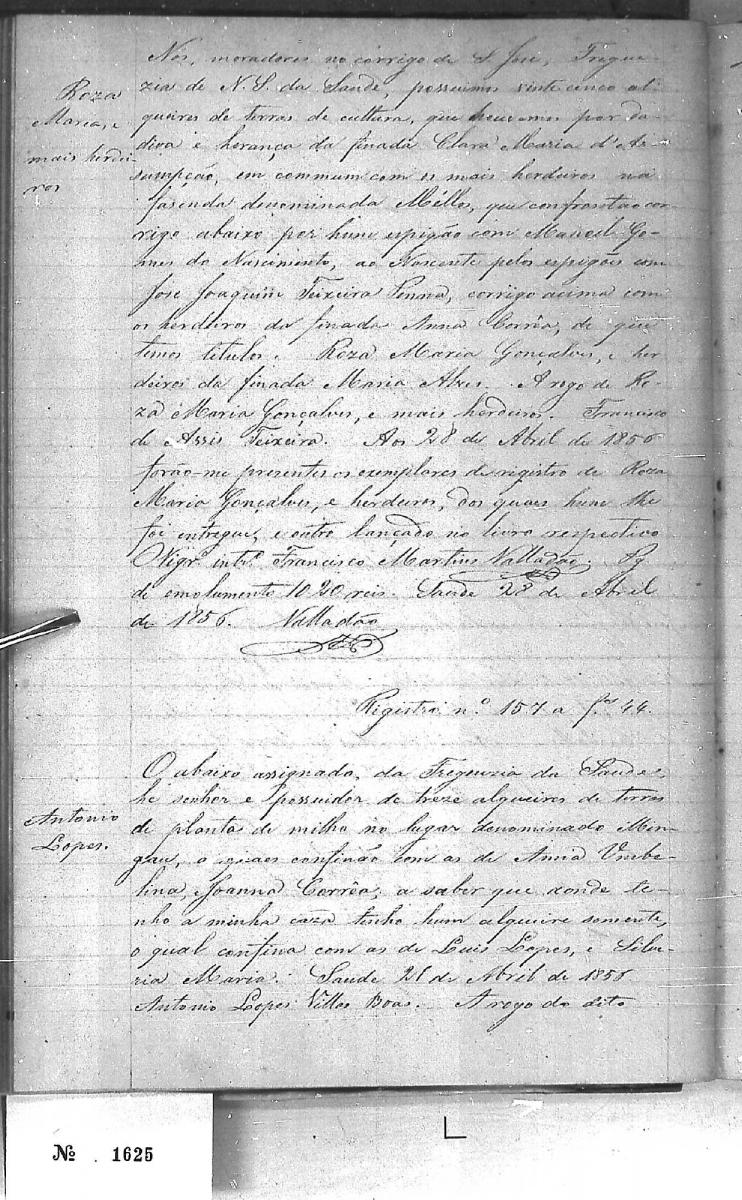 Nos, moradores no corrigo de S. Jose, Fregue-
zia de N. S. da Saude, possuimos vinte cinco al-
queires de terras de cultura, que houvemos por da-
diva e herança da finada Clara Maria d'As-
sumpção, em commum com os mais herdeiros na
fasenda denominada Méllo, que confrontão cor-
rigo abaixo por hum espigão com Manoel Go-
mes do Nascimento, ao Nascente pelos espigões com
Jose Joaquim Teixeira Penna, corrigo acima com
os herdeiros da finada Anna Corrêa, de que
temos titulos. Roza Maria Gonçalves, e her
deiros da finada Maria Alves. A rogo de Ro-
za Maria Gonçalves, e mais herdeiros. Francisco
de Assis Teixeira. Aos 28 de Abril de 1856
forão-me presentes os exemplares de registro de Roza
Maria Gonçalves, e herdeiros, dos quaes hum lhe
foi entregue, e outro lançado no livro respectivo
O Vigr.º intr.º Francisco Martins Valladão. Pg
de emolumento 1020 reis. Saude 28 de Abril
de 1856. Valladão
Roza
Maria, e
mais herdei
ros
Registro n.º 157 a f.as 44.
O abaixo assignado, da Freguezia da Saude,
he senhor e possuidor de treze alqueires de terras
de planta de milho no lugar denominado Min-
gau, o quaes confinão com as de Anna Umbe-
lina, Joanna Corrêa; a saber que donde te-
nho a minha caza tenho hum alqueire somente,
o qual confina com as de Luis Lopes, e Silve-
ria Maria. Saude 21 de Abril de 1856
Antonio Lopes Villas Boas. A rogo do dito
Antonio
Lopes.
№ 1625